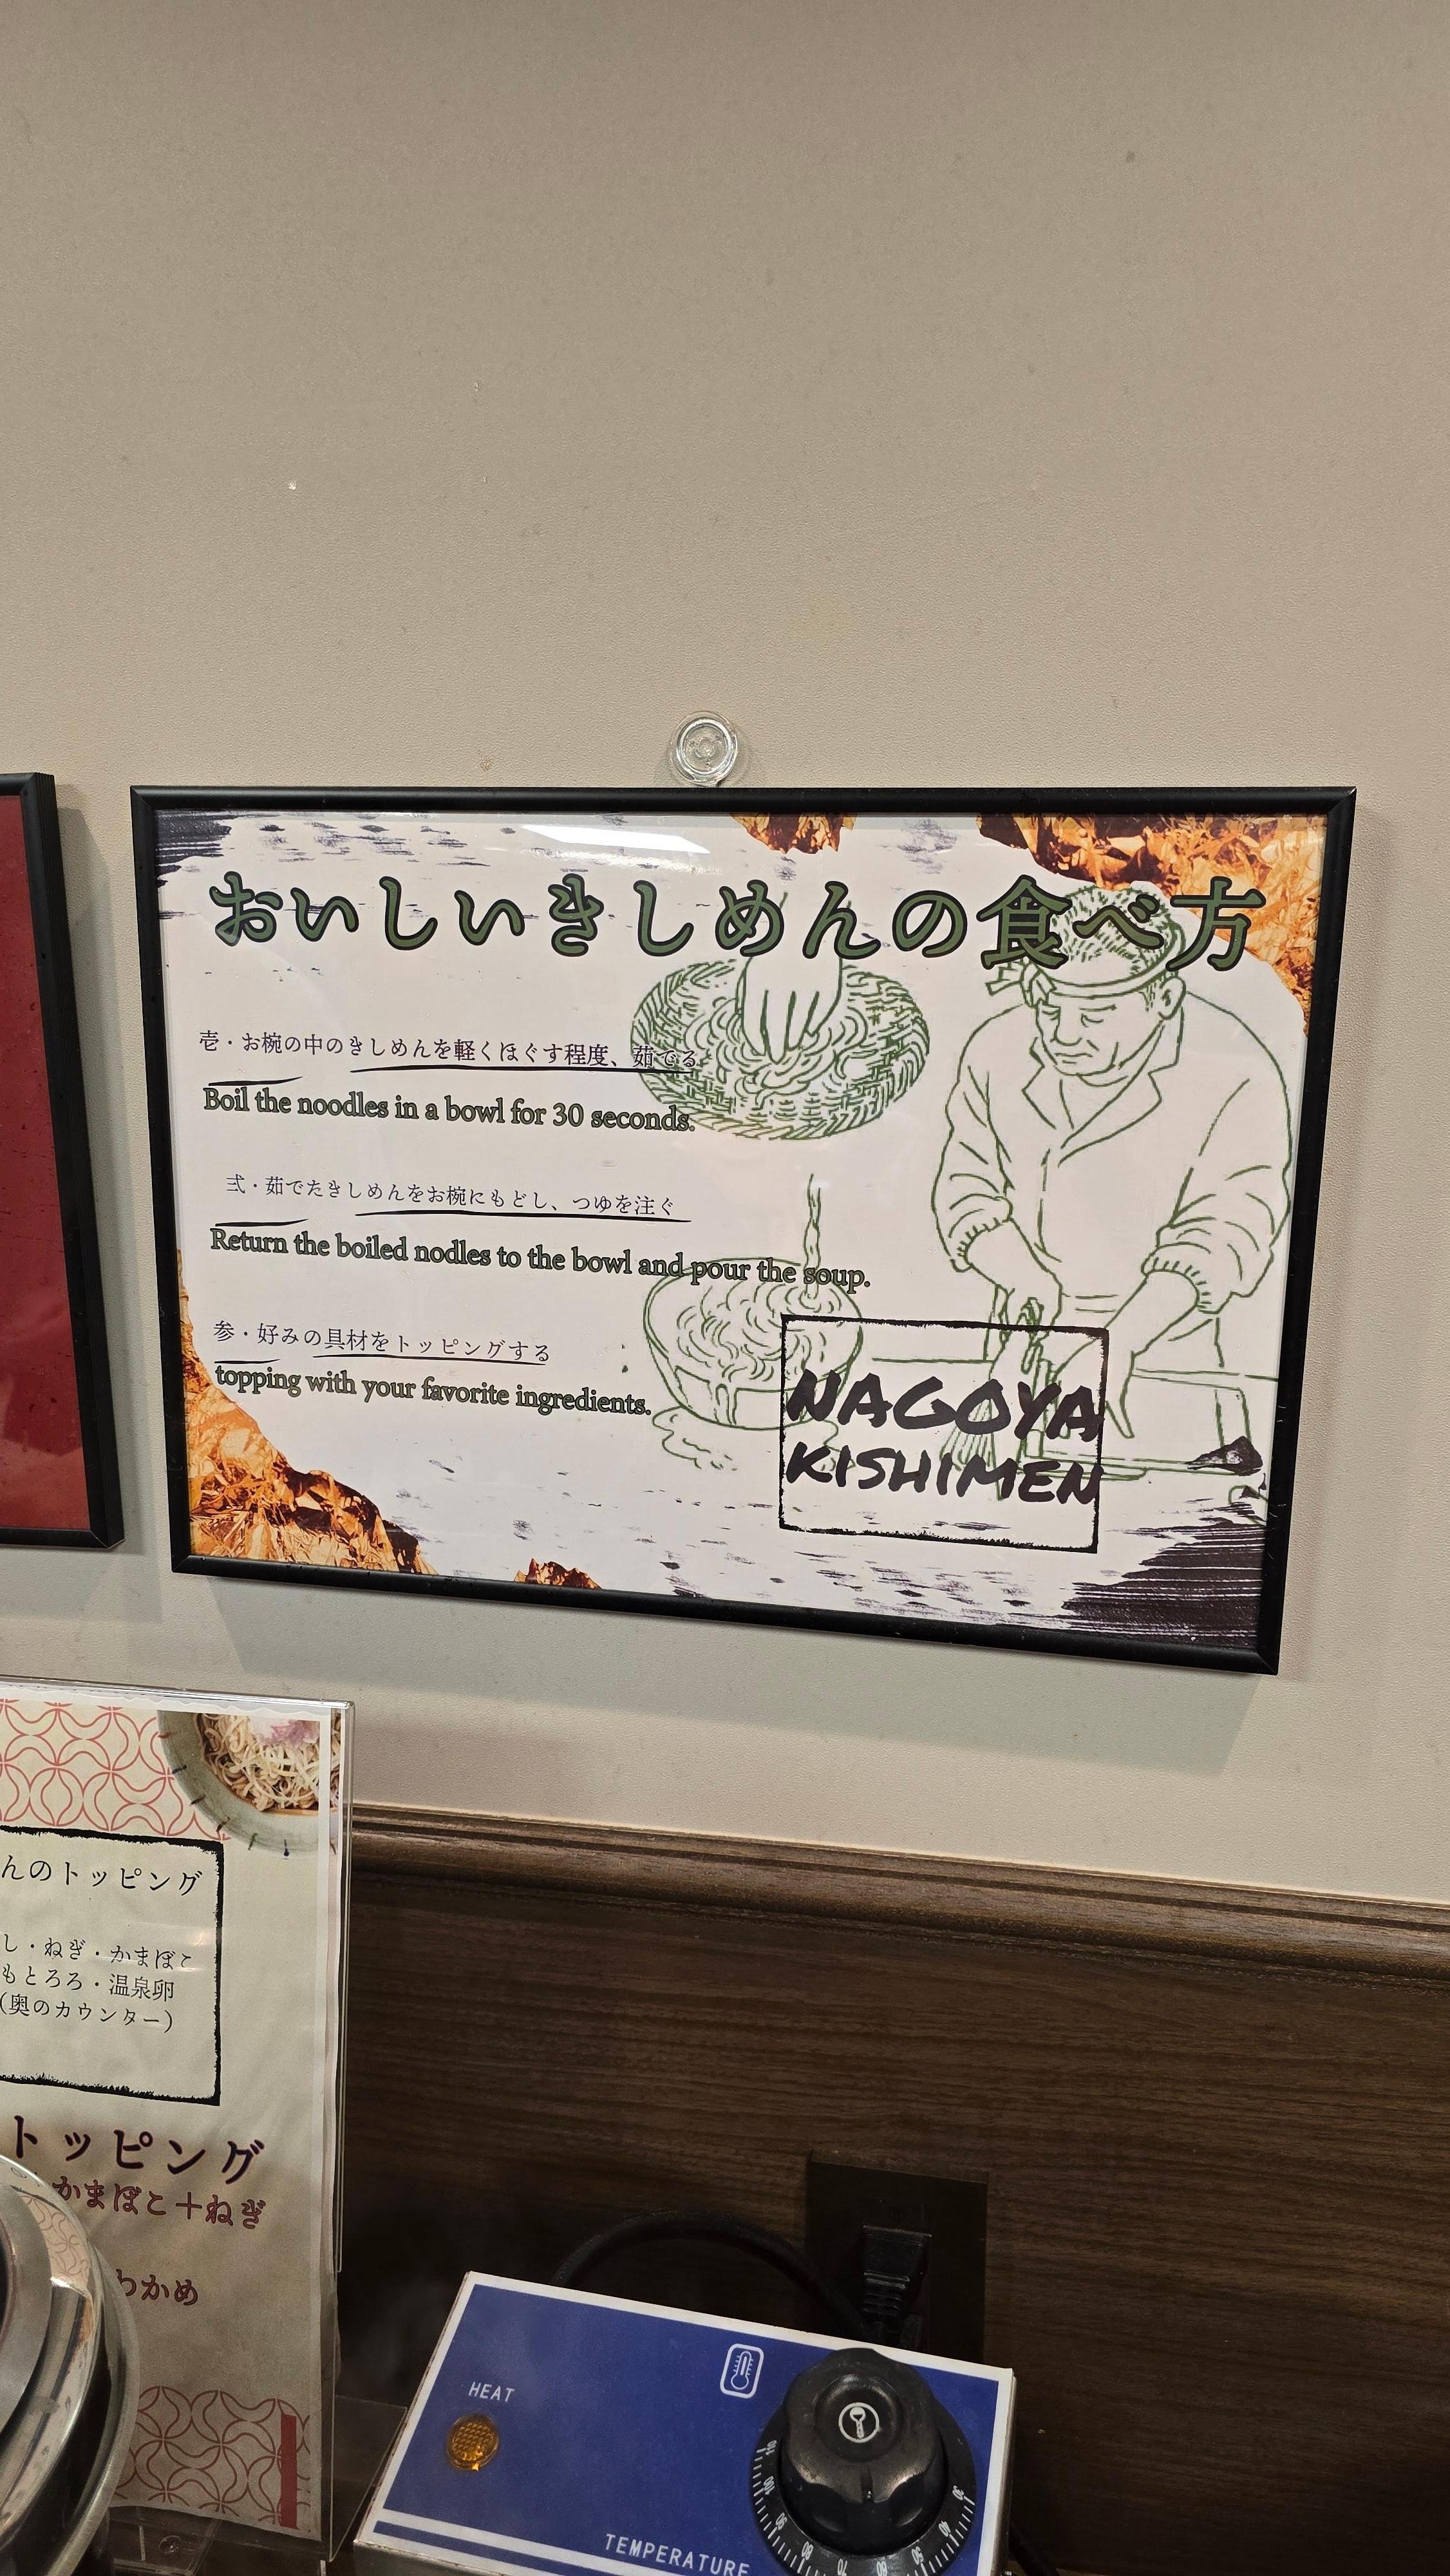 おいしいきしめんの食べ方
壱・お椀の中のきしめんを軽くほぐす程度、茹でる
Boil the noodles in a bowl for 30 seconds.
弐・茹でたきしめんをお椀にもどし、つゆを注ぐ
Return the boiled nodles to the bowl and pour the soup.
参・好みの具材をトッピングする
topping with your favorite ingredients.
NAGOYA
KISHIMEN
んのトッピング
し・ねぎ・かまぼこ
もとろろ・温泉卵
(奥のカウンター)
トッピング
かまぼこ+ねぎ
わかめ
HEAT
TEMPERATURE
30
40
50
60
70
80
90
100
110